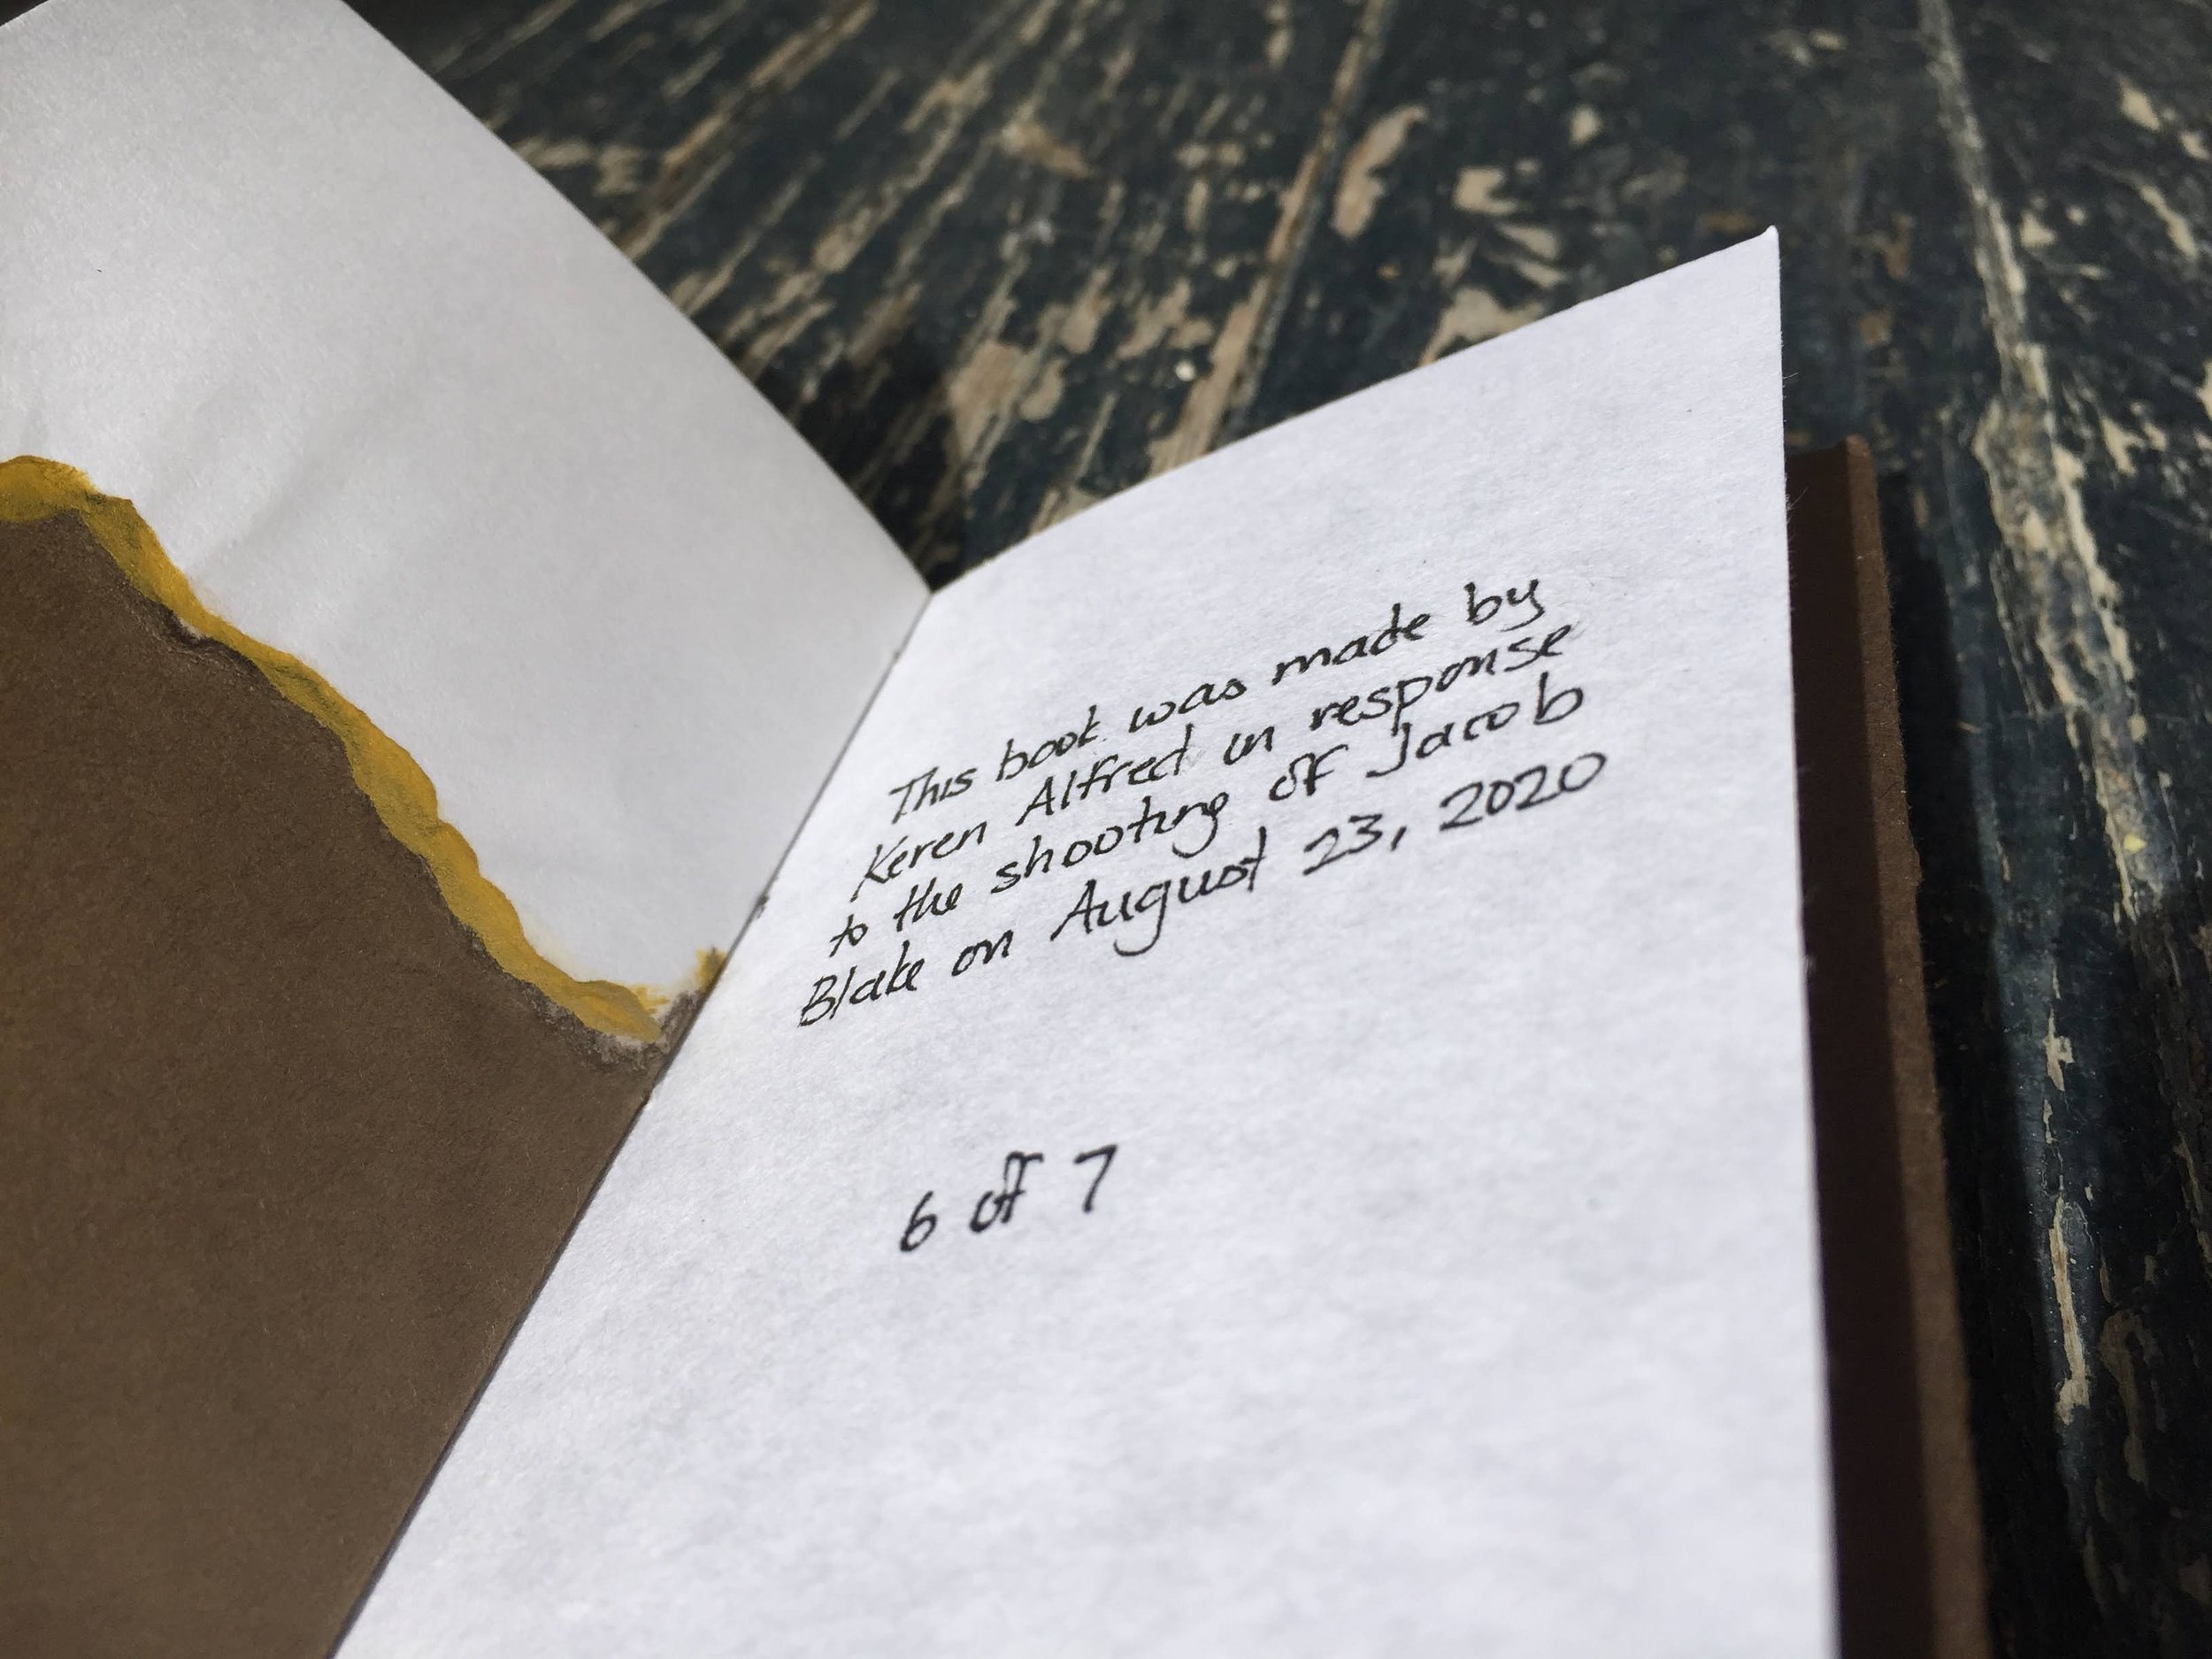 This book was made by
Keren Alfred in response
to the shooting of Jacob
Blake on August 23, 2020
6 of 7